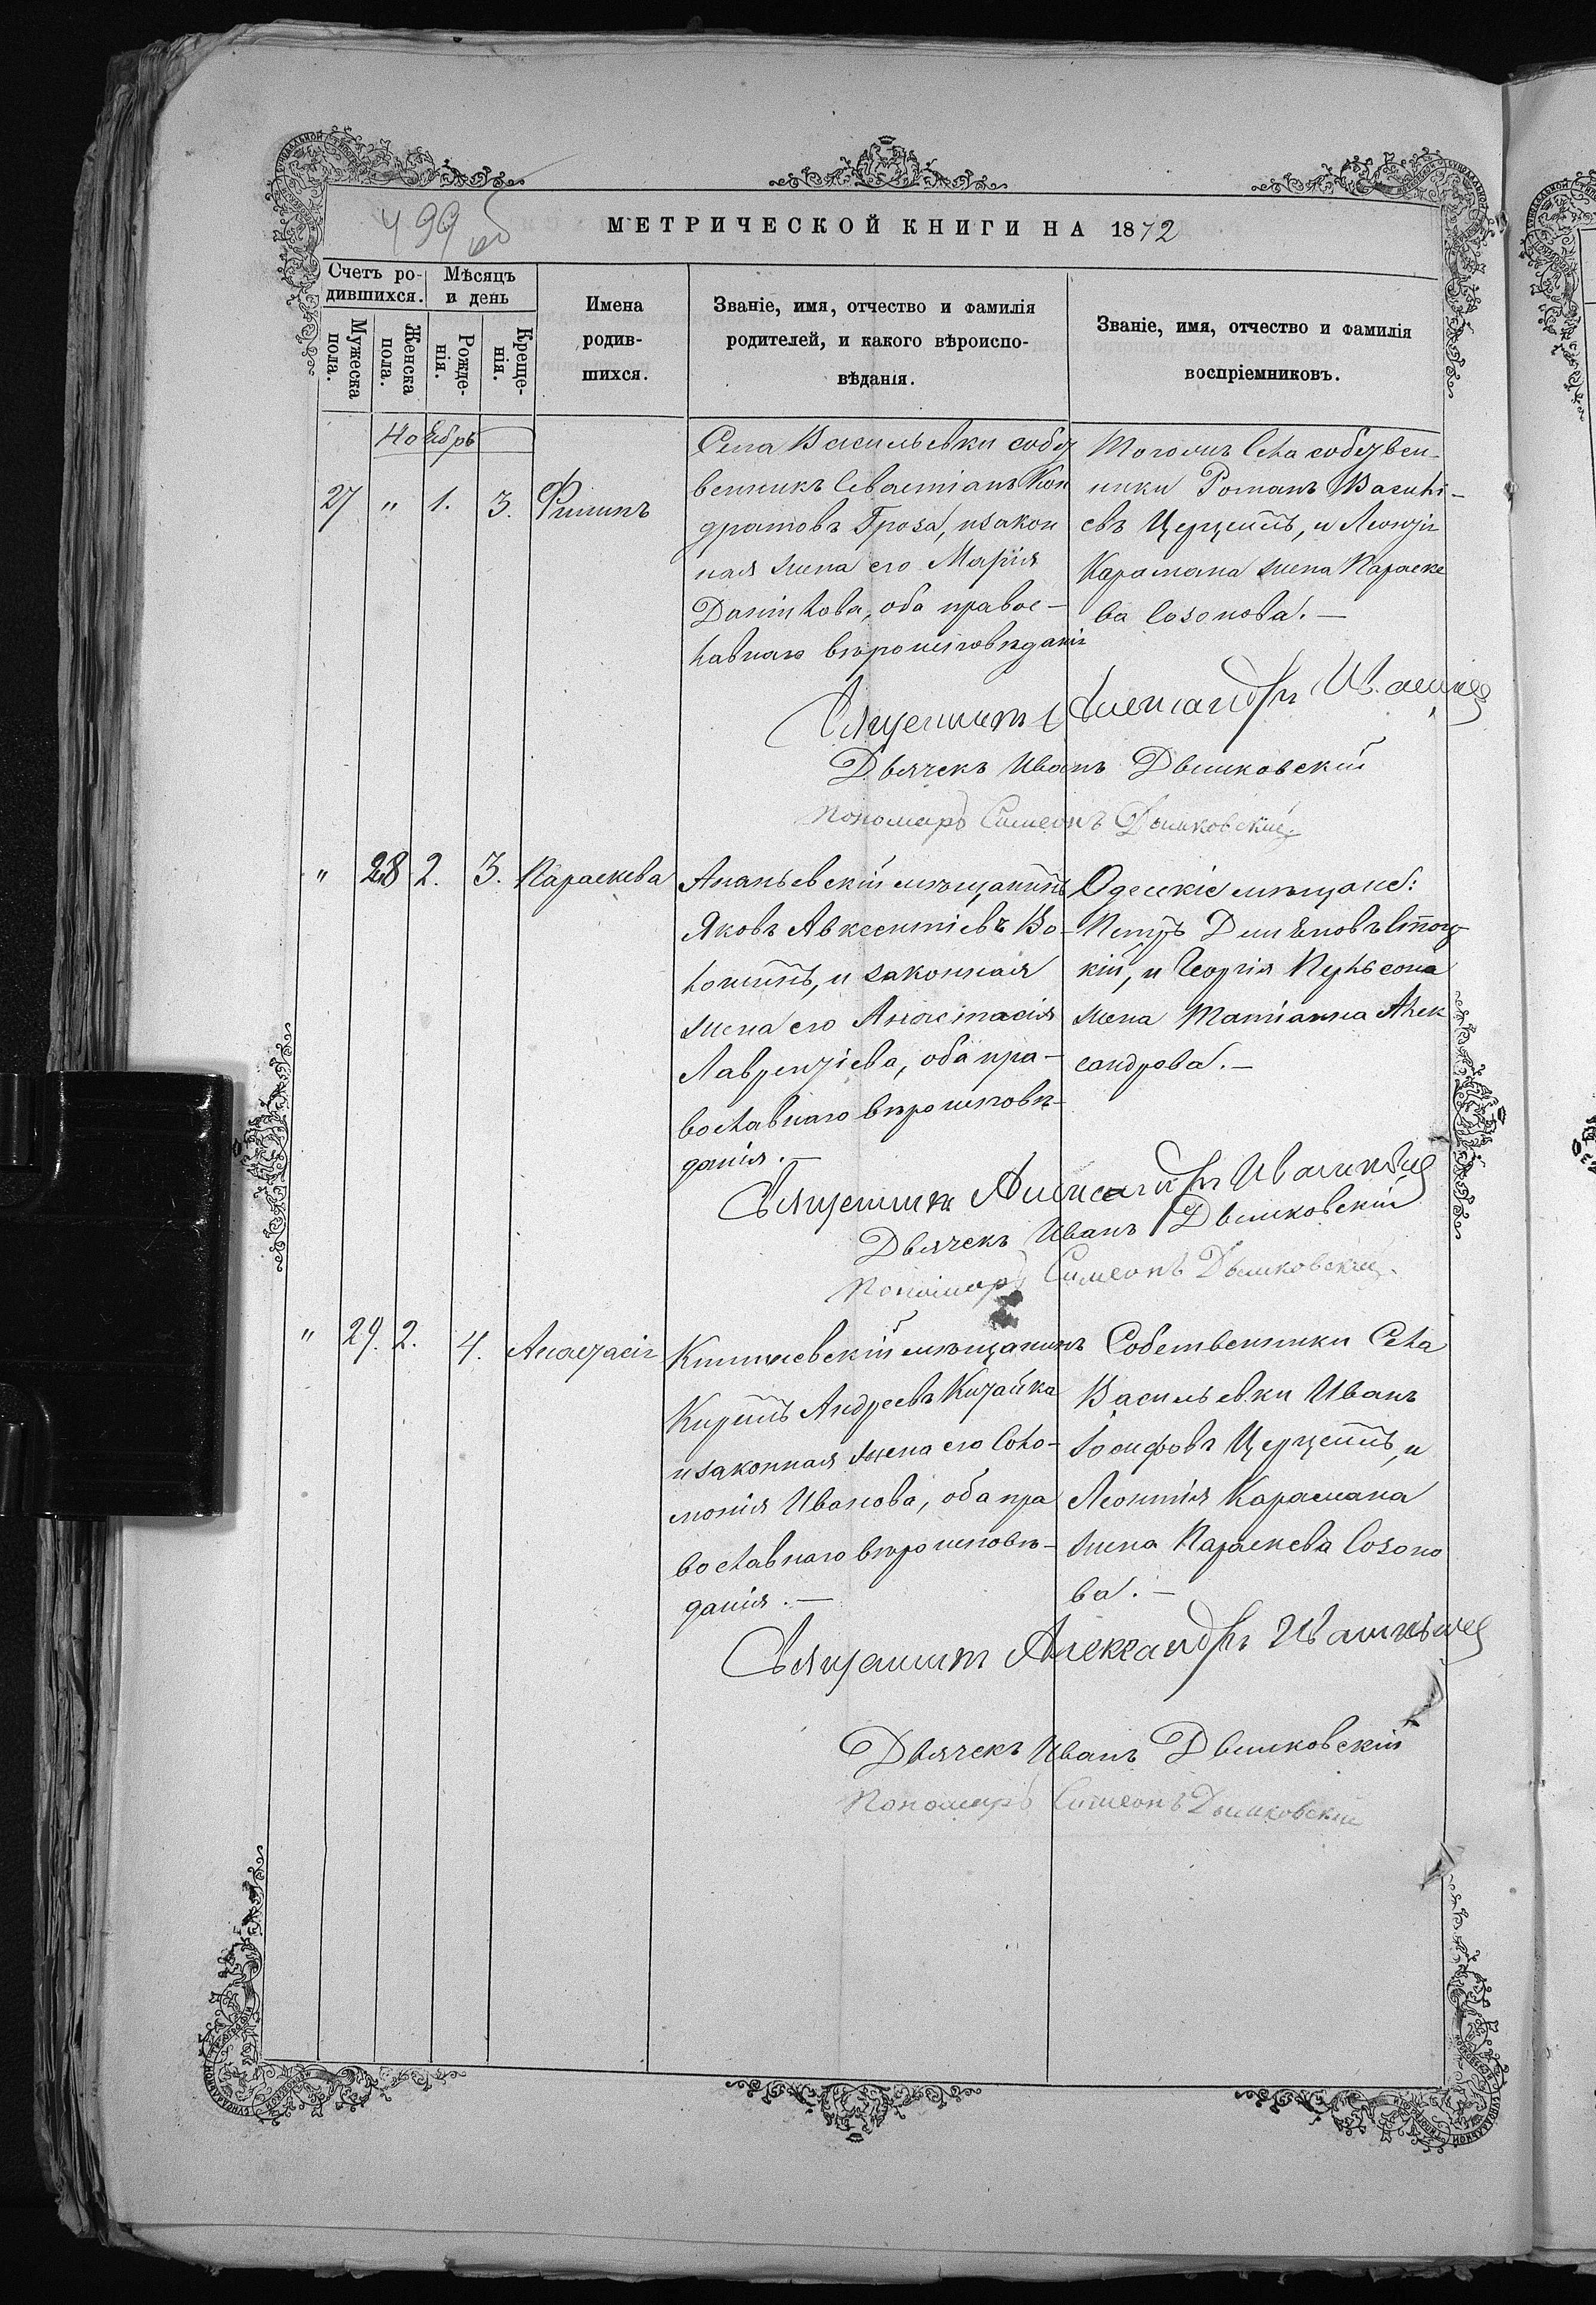 499 об
МЕТРИЧЕСКОЙ КНИГИ НА 1872
Счетъ ро-
дившихся.
Мѣсяцъ
и день
Мужеска
пола.
Женска
пола.
Рожде-
нія.
Креще-
нія.
Имена
родив-
шихся.
Званіе, имя, отчество и фамилія
родителей, и какого вѣроиспо-
вѣданія.
Званіе, имя, отчество и фамилія
воспріемниковъ.
Ноябрь
27 " 1. 3. Филипъ
Села Васильевки собст
венникъ Севастіанъ Кон
дратовъ Гроза, и закон
ная жена его Марія
Даніилова, оба правос-
лавнаго вѣроисповѣданія
Тогожъ села собствен-
ники Романъ Василі-
евъ Церцеилъ, и Леонтія
Карамана жена Параске
ва Созонова. —
Священникъ Александръ
Дьячекъ Иванъ Дымковскій
Пономарь Симеонъ Дымковскій
" 28 2. 3. Параскева
Ананьевскій мѣщанинъ
Яковъ Авксентіевъ Во-
лошинъ, и законная
жена его Анастасія
Лаврентіева, оба пра-
вославнаго вѣроисповѣ-
данія. —
Одесскіе мѣщане:
Петръ
кій, и Георгія
жена Татіанна Алек
сандрова. —
Священникъ Александръ
Дьячекъ Иванъ Дымковскій
Пономарь Симеонъ Дымковскій.
" 29. 2. 4. Анастасія
Кишиневскій мѣщанинъ
Кирилъ Андреевъ Китайка
и законная жена его Соло-
монія Иванова, оба пра
вославнаго вѣроисповѣ-
данія. —
Собственники села
Васильевки Иванъ
Іосифовъ Церцеилъ, и
Леонтія Карамана
жена Параскева Созоно
ва. —
Священникъ Александръ
Дьячекъ Иванъ Дымковскій
Пономарь Симеонъ Дымковскій